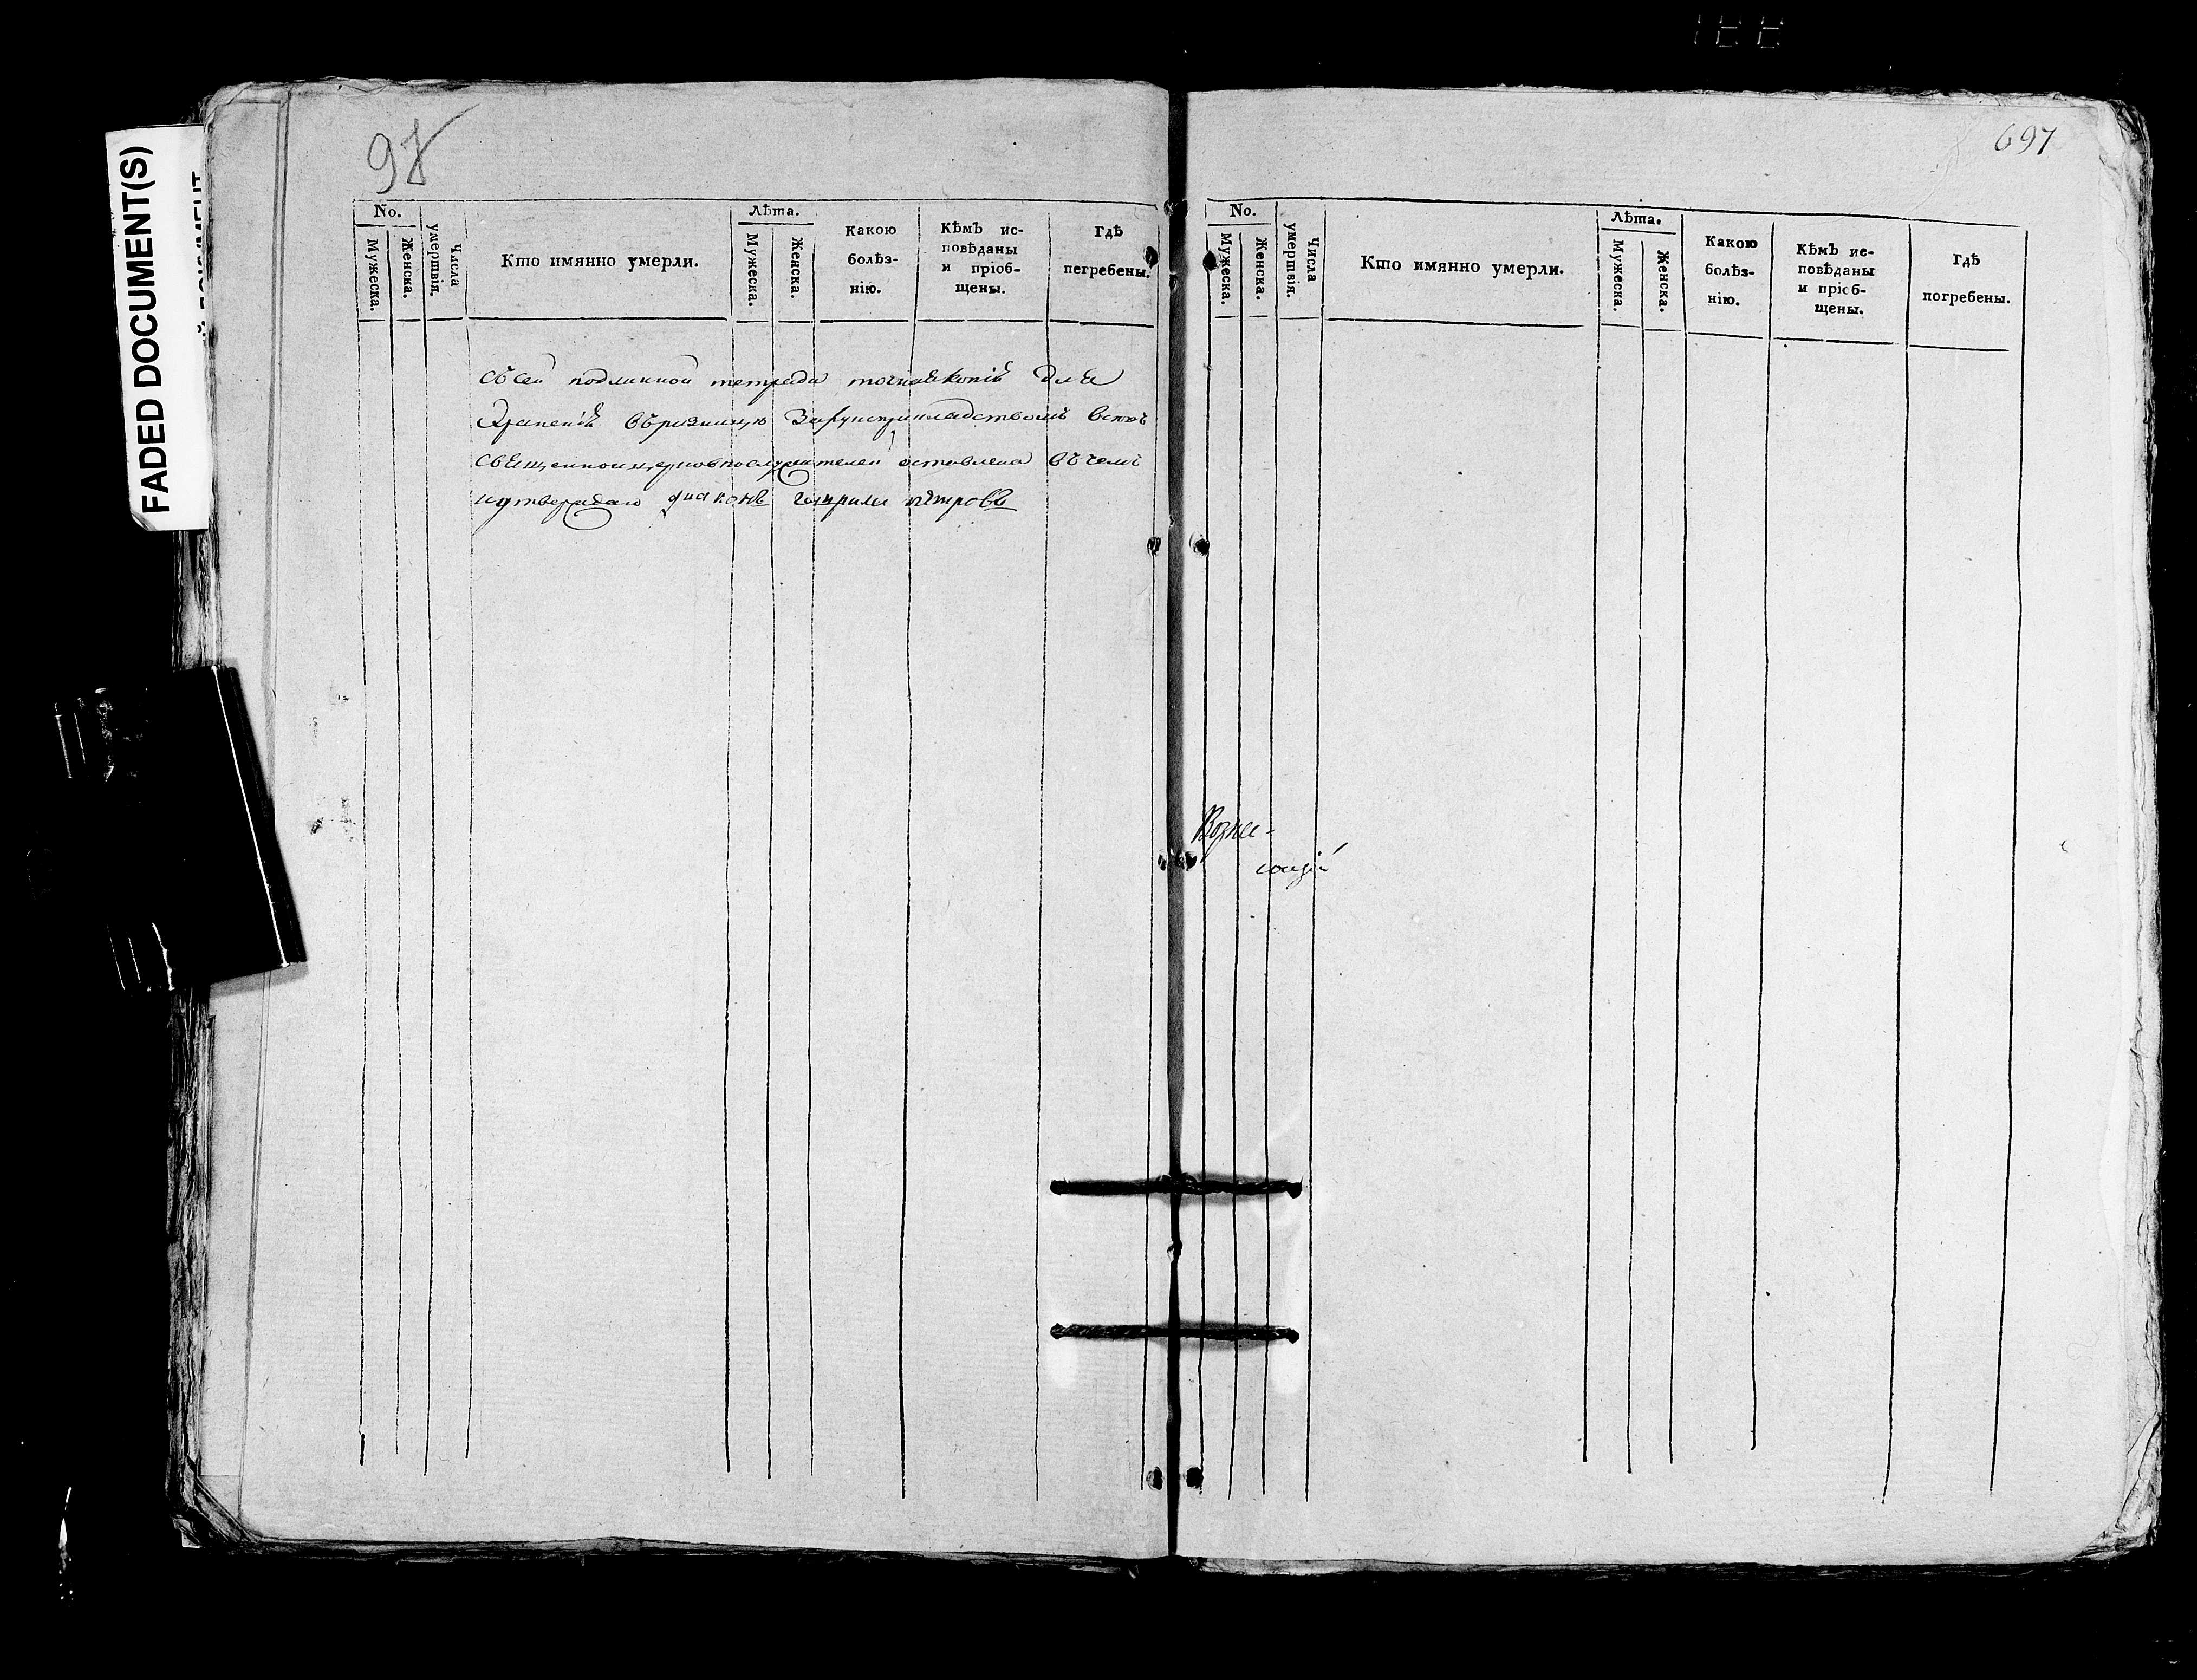 188
FADED DOCUMENT(S)
98
No.
Мужеска.
Женска.
Числа
умертвія.
Кто имянно умерли.
Лѣта.
Мужеска.
Женска.
Какою
болѣз-
нію.
Кѣмъ ис-
повѣданы
и пріоб-
щены.
Гдѣ
погребены.
съ сей подлинной тетради точная копія для
хранения въ ризницу
священноцерковнослужителей оставлена въ чемъ
и утверждаю диаконъ петровъ
697
No.
Мужеска.
Женска.
Числа
умертвія.
Кто имянно умерли.
Лѣта.
Мужеска.
Женска.
Какою
болѣз-
нію.
Кѣмъ ис-
повѣданы
и пріоб-
щены.
Гдѣ
погребены.